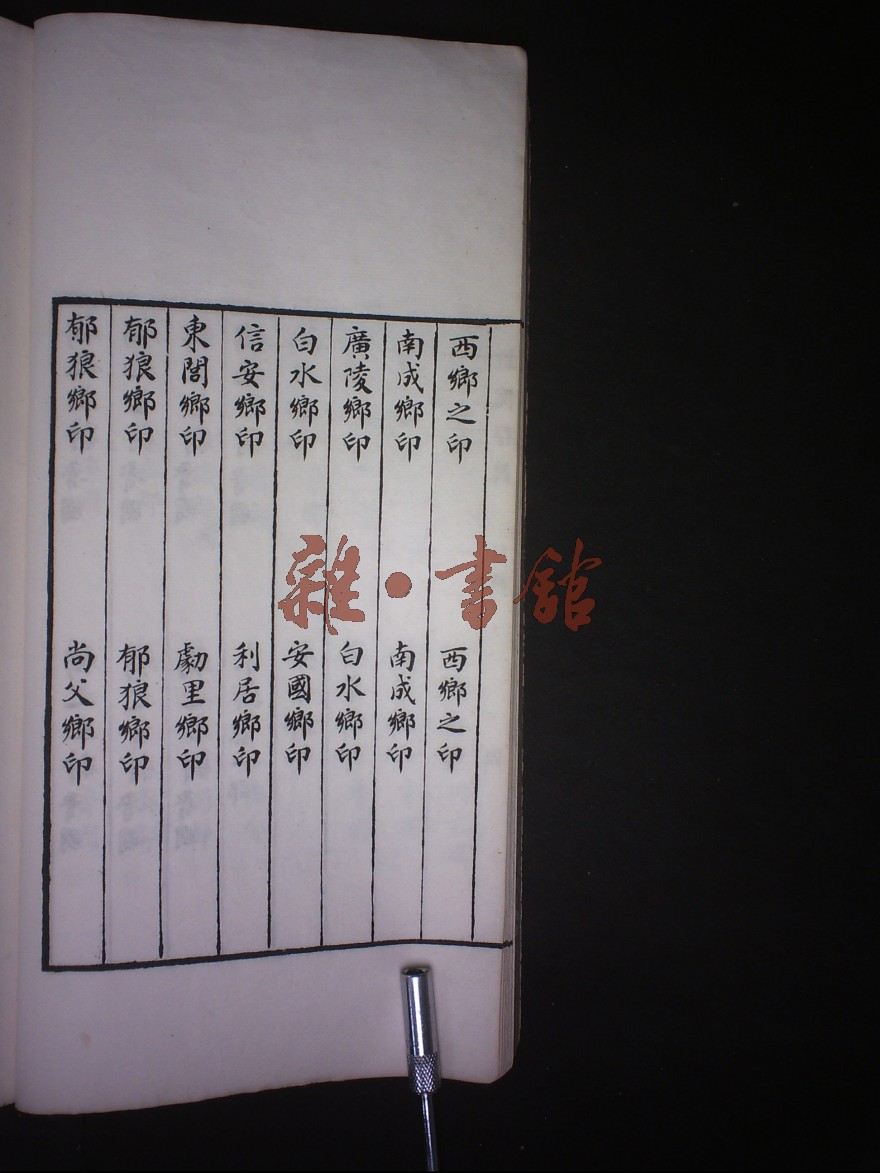 西鄉之印 西鄉之印
南成鄉印 南成鄉印
廣陵鄉印 白水鄉印
白水鄉印 安國鄉印
信安鄉印 利居鄉印
東閭鄉印 勮里鄉印
郁狼鄉印 郁狼鄉印
郁狼鄉印 尚父鄉印
雜·書館